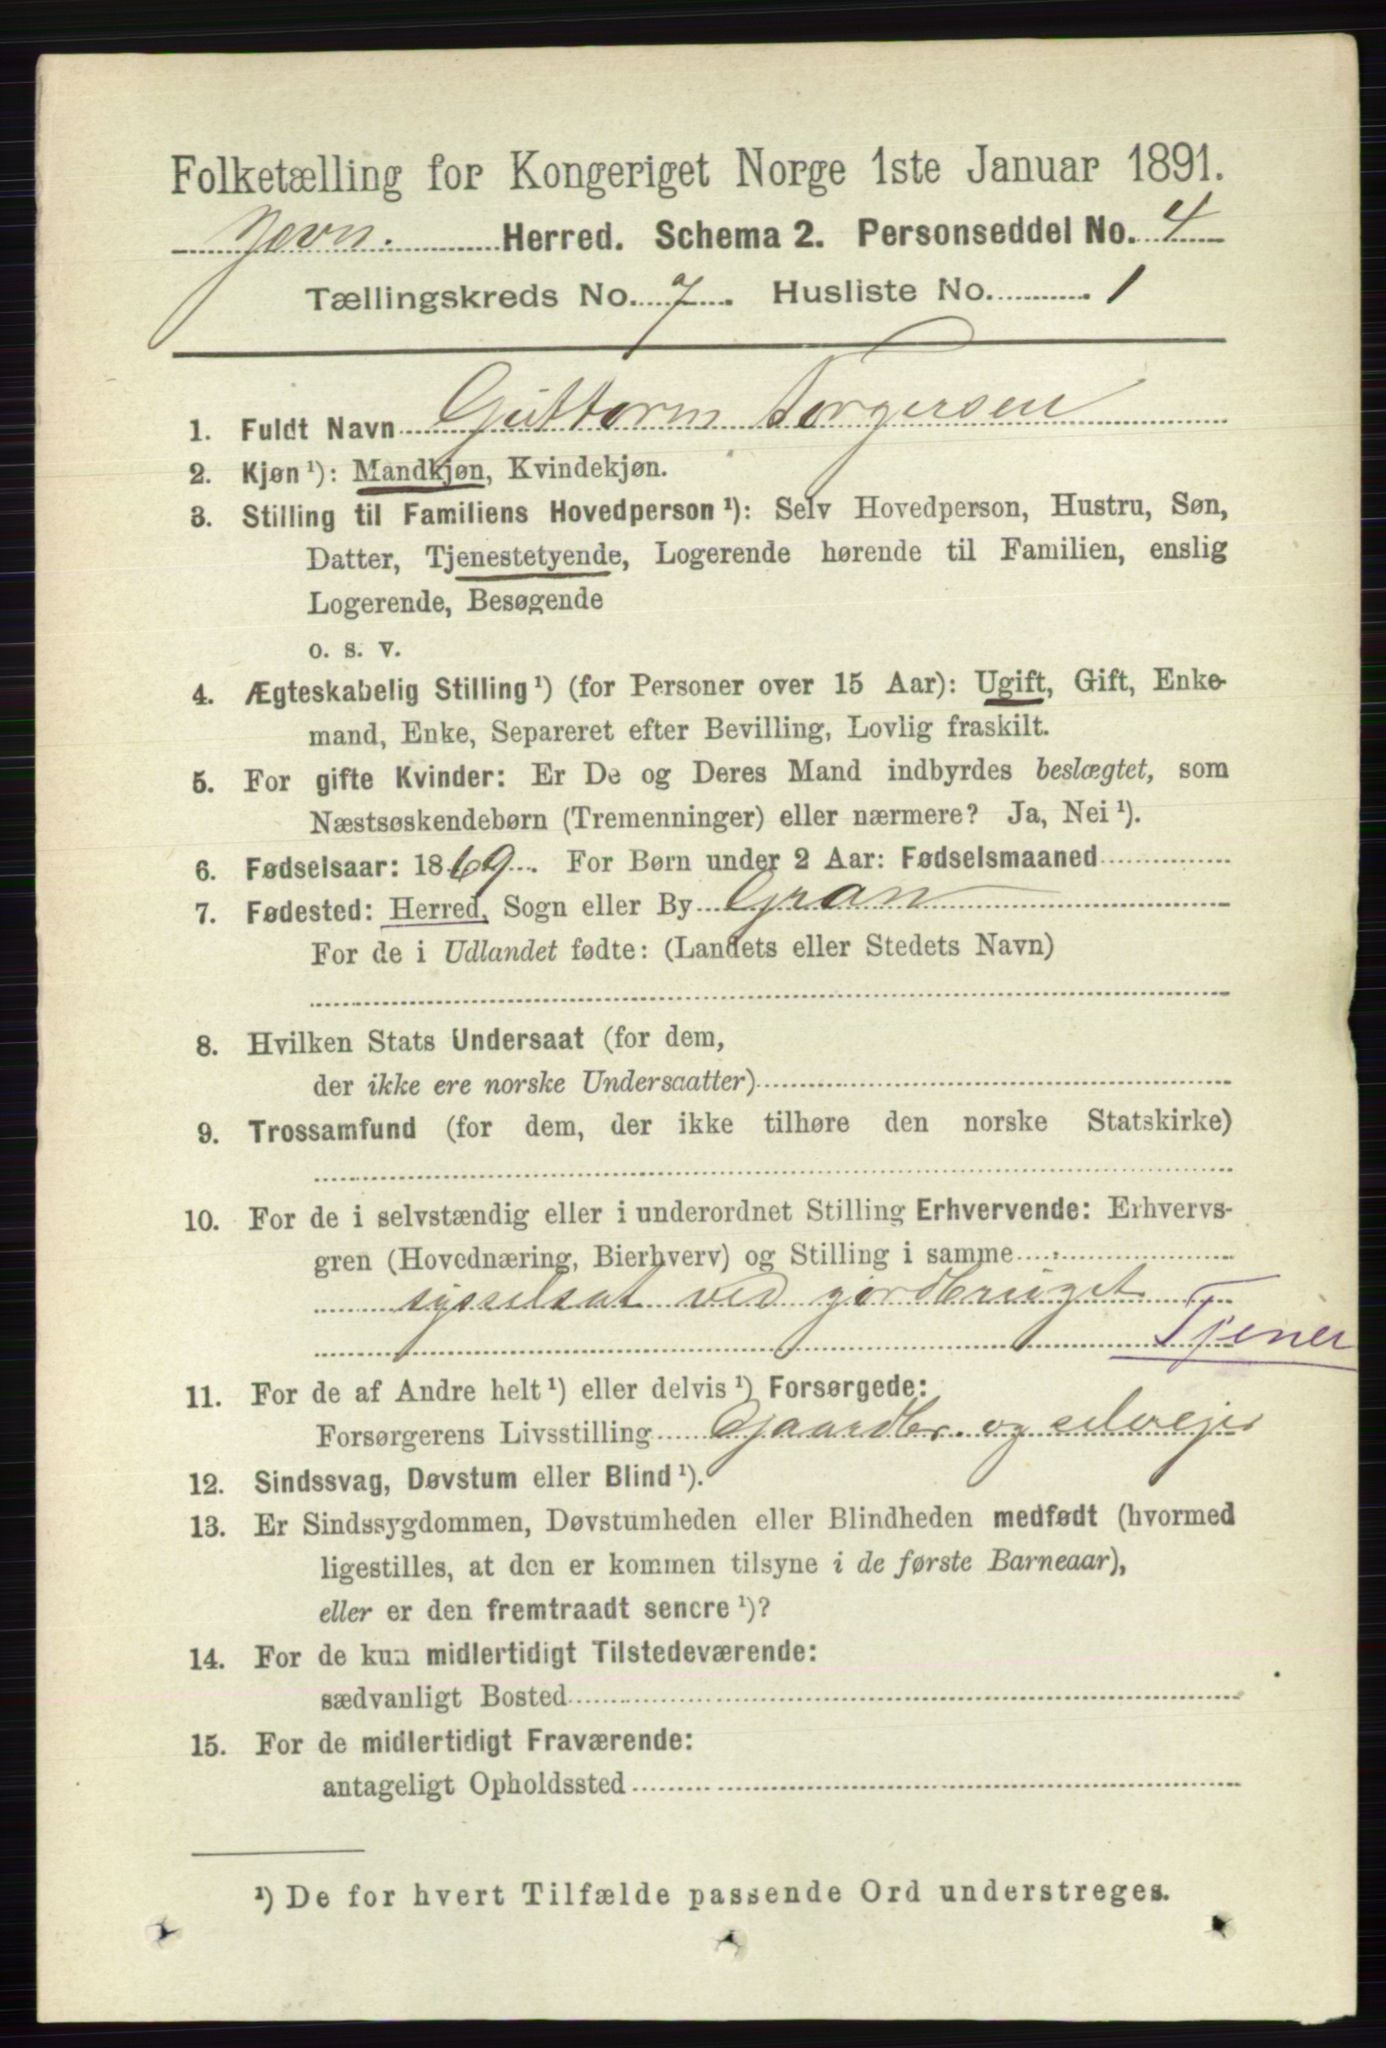 Folketælling for Kongeriget Norge 1ste Januar 1891.
Jevn. Herred. Schema 2. Personseddel No. 4
Tællingskreds No. 7. Husliste No. 1
1. Fuldt Navn Guttorm Torgersen
2. Kjøn ¹): Mandkjøn, Kvindekjøn.
3. Stilling til Familiens Hovedperson ¹): Selv Hovedperson, Hustru, Søn,
Datter, Tjenestetyende, Logerende hørende til Familien, enslig
Logerende, Besøgende
o. s. v.
4. Ægteskabelig Stilling ¹) (for Personer over 15 Aar): Ugift, Gift, Enke-
mand, Enke, Separeret efter Bevilling, Lovlig fraskilt.
5. For gifte Kvinder: Er De og Deres Mand indbyrdes beslægtet, som
Næstsøskendebørn (Tremenninger) eller nærmere? Ja, Nei ¹).
6. Fødselsaar: 1869. For Børn under 2 Aar: Fødselsmaaned
7. Fødested: Herred, Sogn eller By Gran
For de i Udlandet fødte: (Landets eller Stedets Navn)
8. Hvilken Stats Undersaat (for dem,
der ikke ere norske Undersaatter)
9. Trossamfund (for dem, der ikke tilhøre den norske Statskirke)
10. For de i selvstændig eller i underordnet Stilling Erhvervende: Erhvervs-
gren (Hovednæring, Bierhverv) og Stilling i samme
sysselsat ved jordbruget
Tjener
11. For de af Andre helt ¹) eller delvis ¹) Forsørgede:
Forsørgerens Livsstilling Gaardbr. og selvejer
12. Sindssvag, Døvstum eller Blind ¹).
13. Er Sindssygdommen, Døvstumheden eller Blindheden medfødt (hvormed
ligestilles, at den er kommen tilsyne i de første Barneaar),
eller er den fremtraadt senere ¹)?
14. For de kun midlertidigt Tilstedeværende:
sædvanligt Bosted
15. For de midlertidigt Fraværende:
antageligt Opholdssted
¹) De for hvert Tilfælde passende Ord understreges.